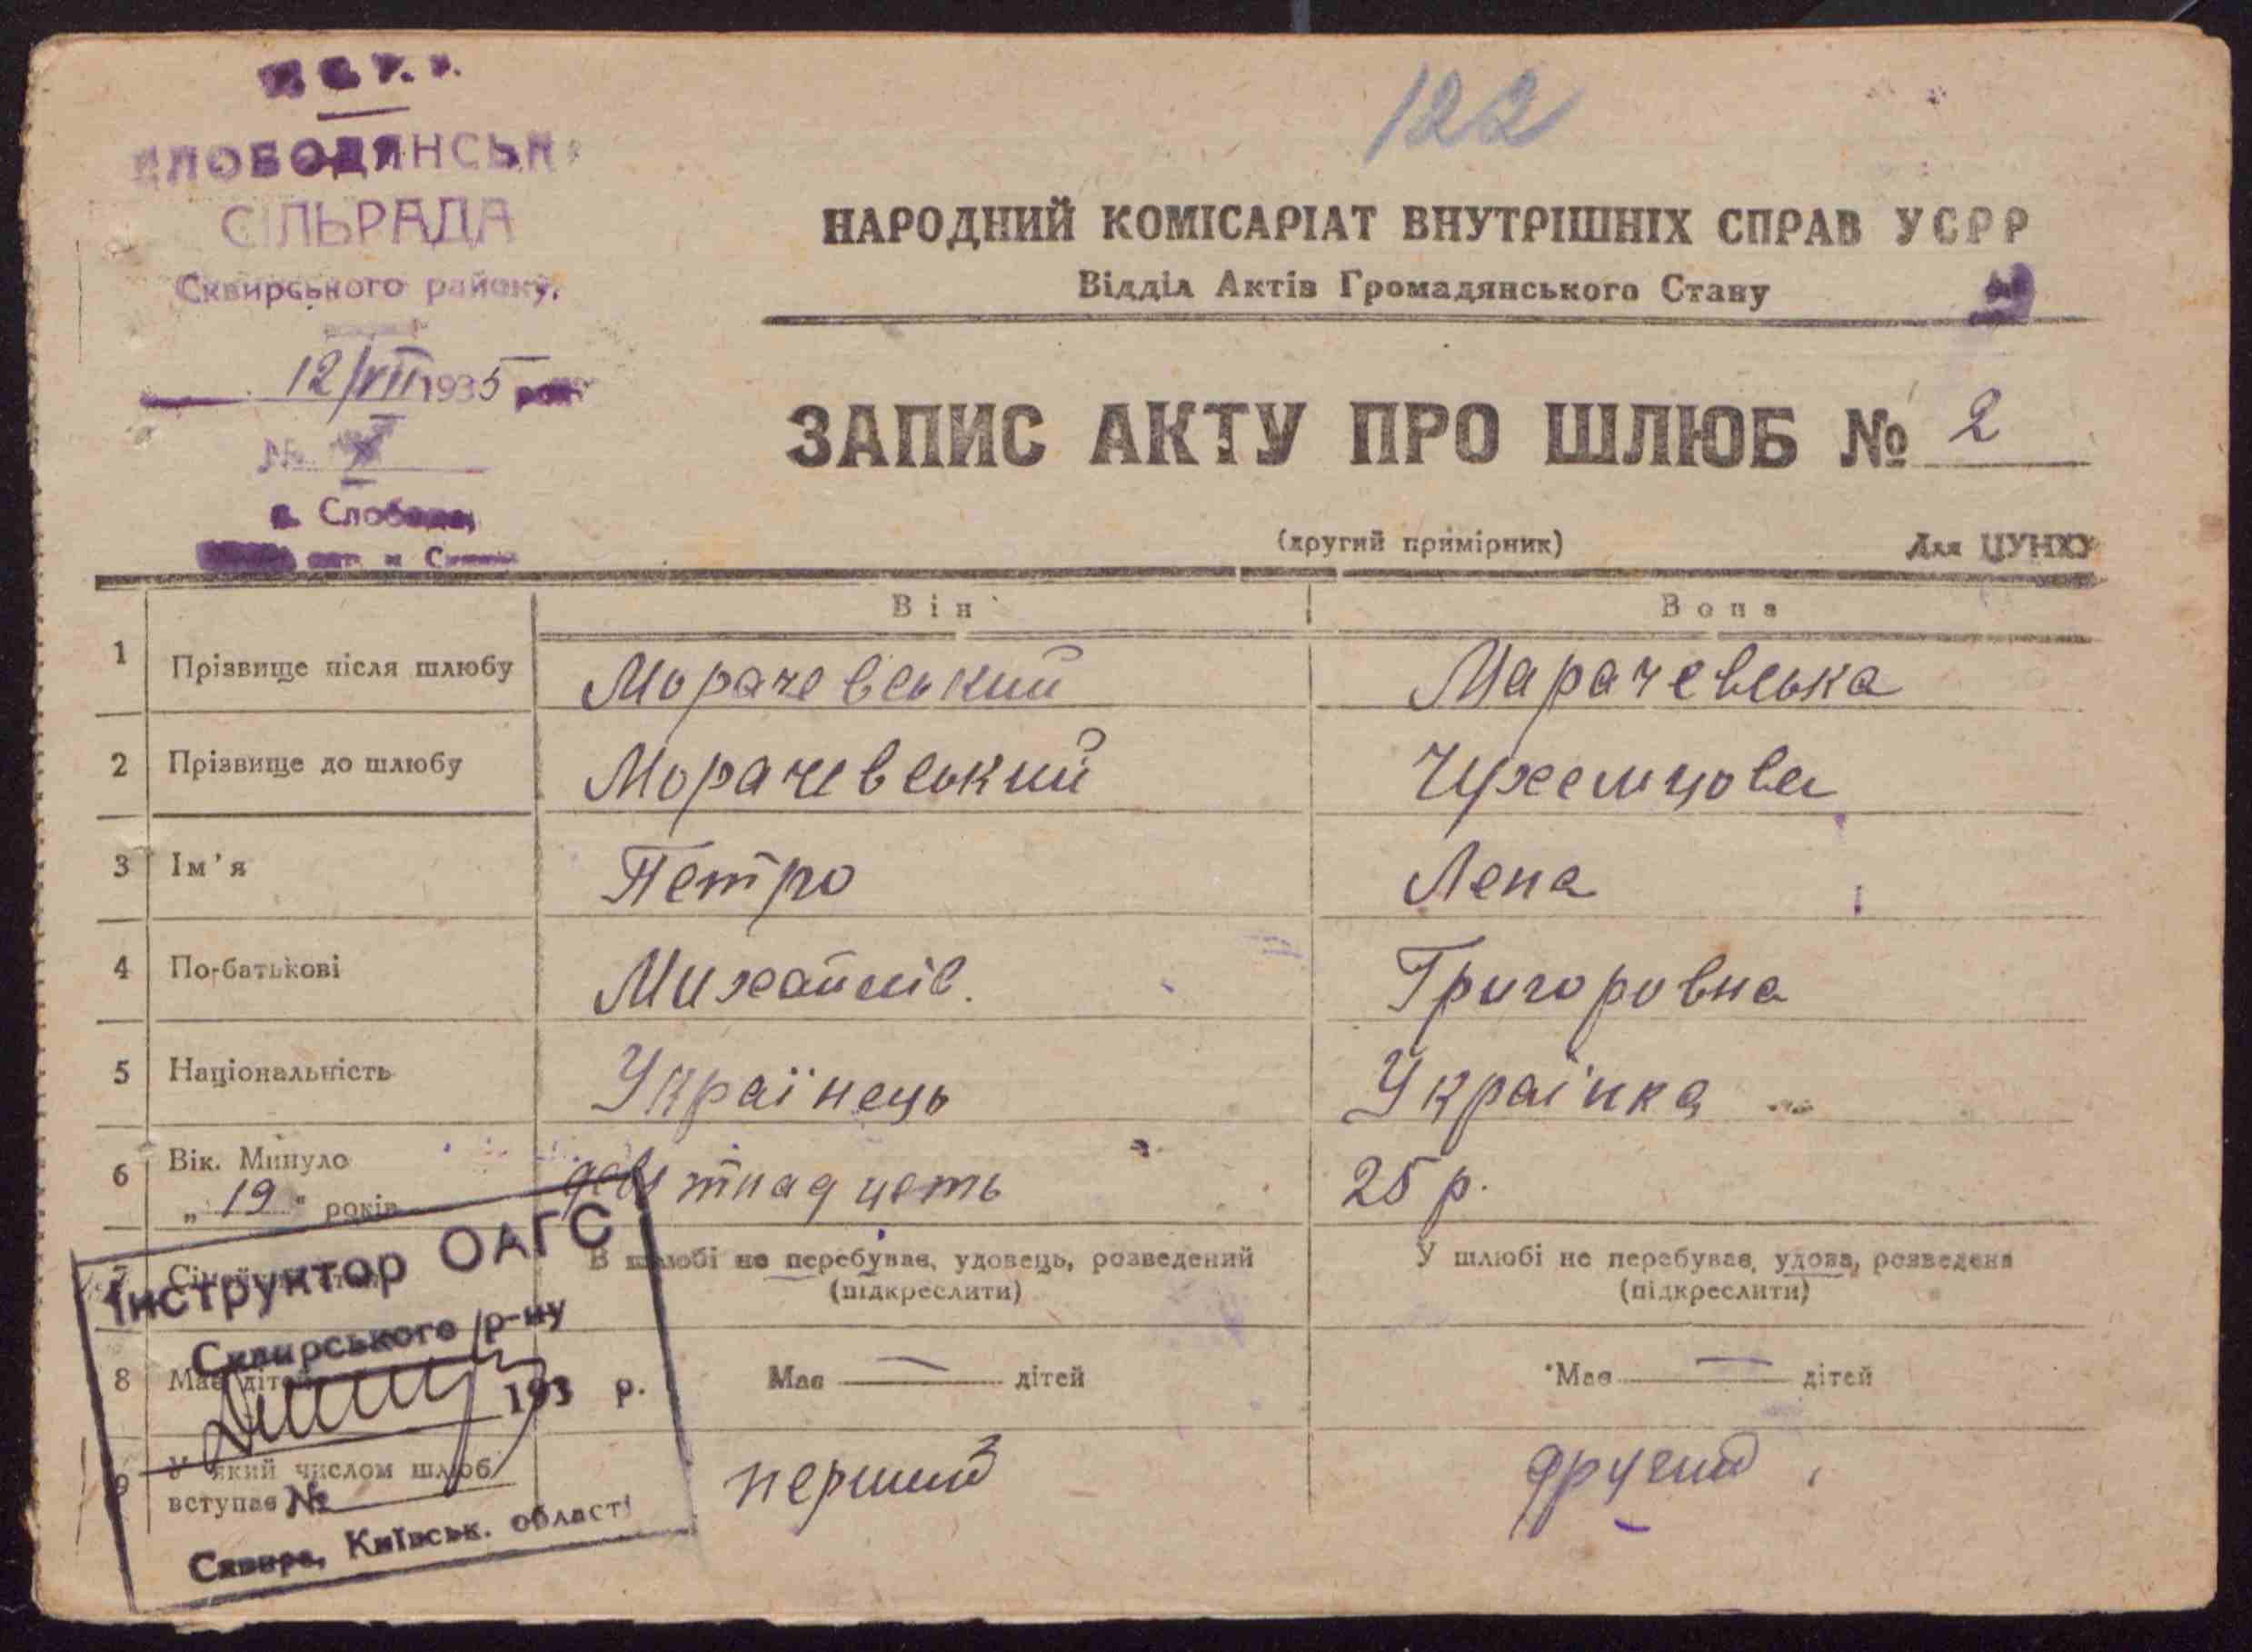 У С Р Р.
СЛОБОДЯНСЬК
СІЛЬРАДА
Сквирського району.
12/VII 1935 року
№
с. Слобода,
122
НАРОДНИЙ КОМІСАРІАТ ВНУТРІШНІХ СПРАВ УСРР
Відділ Актів Громадянського Стану
ЗАПИС АКТУ ПРО ШЛЮБ № 2
(другий примірник) Для ЦУНХУ
Він Вона
1 Прізвище після шлюбу Морачевський Марачевська
2 Прізвище до шлюбу Морачевський Чужемцова
3 Ім'я Петро Лена
4 По-батькові Михайлів. Григоровна
5 Національність Українець Українка
6 Вік. Минуло „19“ років девятнадцеть 25 р.
7 В шлюбі не перебував, удовець, розведений У шлюбі не перебував, удова, розведена
(підкреслити) (підкреслити)
8 Має дітей Має — дітей Має — дітей
9 У який числом шлюб вступає перший другий
Інструктор ОАГС
Сквирського р-ну
193 р.
№
Сквира, Київськ. області